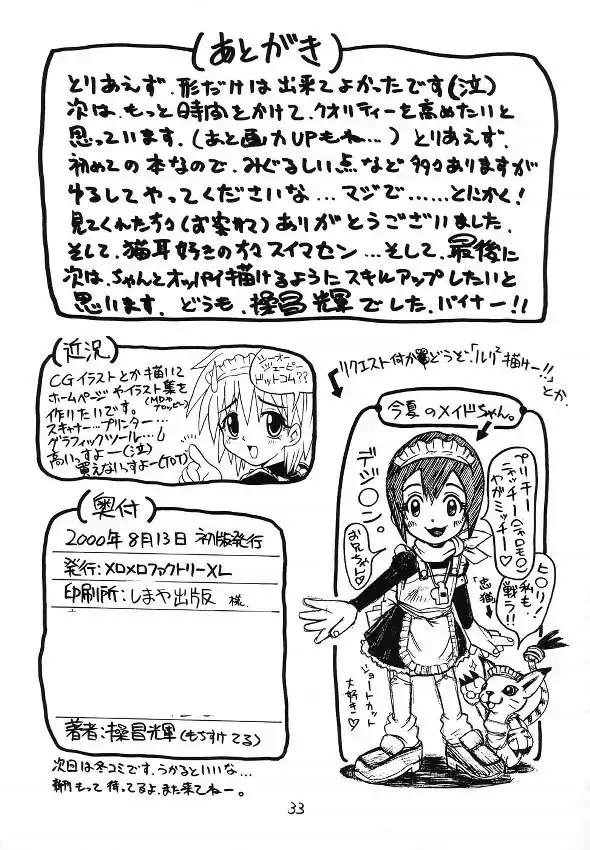 (あとがき)
とりあえず、形だけは出来てよかったです(泣)
次は、もっと時間をかけて、クオリティーを高めたいと
思っています。(あと画力UPもね…) とりあえず、
初めての本なので、みぐるしい点など多々ありますが
ゆるしてやってくださいな…マジで……とにかく!
見てくれた方々(お客様)ありがとうございました。
そして、猫耳好きの方々スイマセン…そして、最後に
次は、ちゃんとオッパイ描けるようにスキルアップしたいと
思います。どうも、操昌輝でした、バイナー!!
(近況)
CGイラストとか描いて
ホームページやイラスト集を
(MDやフロッピー)
作りたいです。
スキャナー…プリンター…
グラフィックツール…
高いっすよー(泣)
買えないっすよー(TOT)
ジーオー
ジェーピー
ドットコム??
リクエスト何か
どうぞ、「ルリ²描けー!!」
とか、
今夏のメイドちゃん。
デジ○ン。
プリキー
ニャッチー(ニャロモ○)
やがミッチー♡
お兄ちゃん♡
ヒ○リ!
私も
戦う!!
「忠猫」
ショートカット
大好き♡
(奥付)
2000年8月13日 初版発行
発行:メロメロファクトリーXL
印刷所:しまや出版 様
著者:操昌輝(もちすけてる)
次回は冬コミです。うかるといいな…
新刊もって待ってるよ、また来てねー。
33